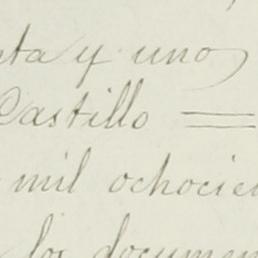 nta y uno
Castillo
mil ochocien
los documen